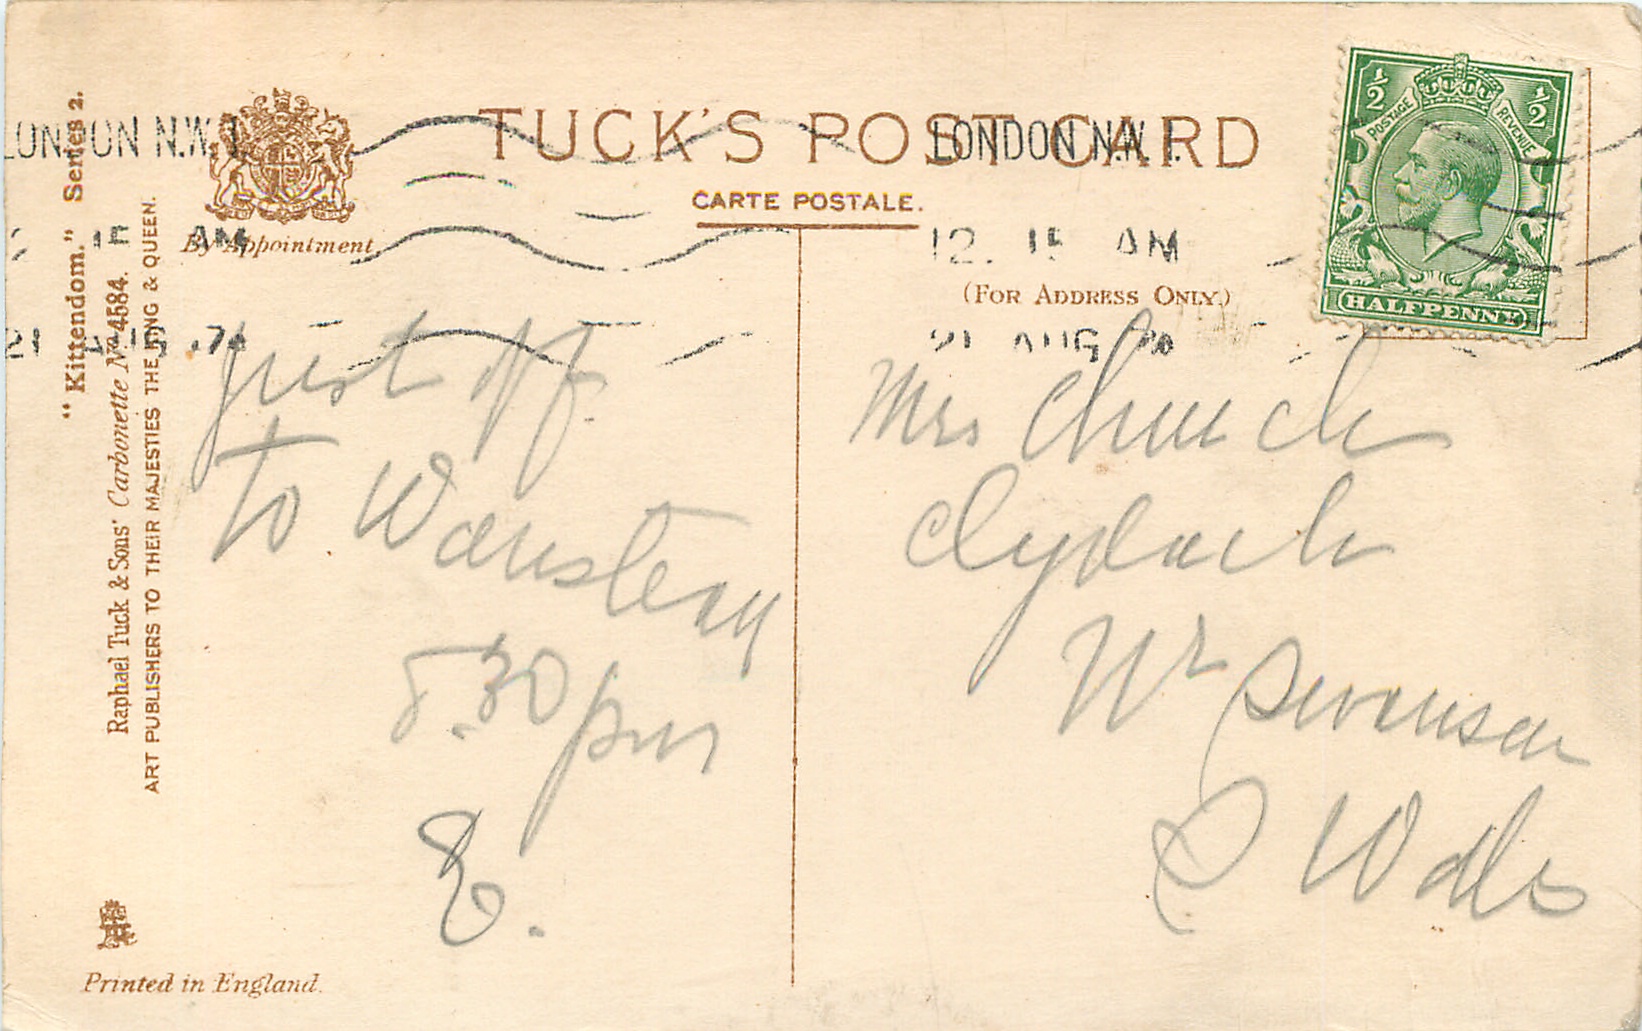 "Kittendom." Series 2.
Raphael Tuck & Sons' Carbonette No 4584.
ART PUBLISHERS TO THEIR MAJESTIES THE KING & QUEEN.
LONDON N.W.1.
15 AM
21 AUG
By Appointment
TUCK'S POST CARD
CARTE POSTALE.
LONDON N.W.1.
12. 15 AM
(FOR ADDRESS ONLY.)
21 AUG
½ ½
POSTAGE REVENUE
HALFPENNY
just off.
To Wanstead
5.30 pm
E.
Mrs Church
Clydach
Nr Swansea
S Wales
Printed in England.